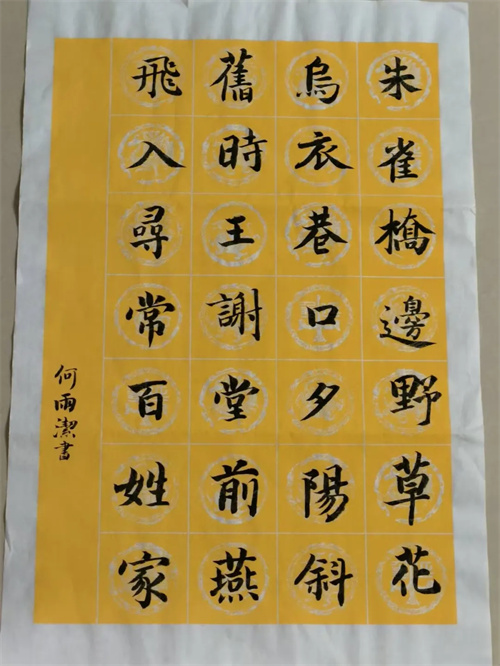 朱雀橋邊野草花
烏衣巷口夕陽斜
舊時王謝堂前燕
飛入尋常百姓家
何雨潔書